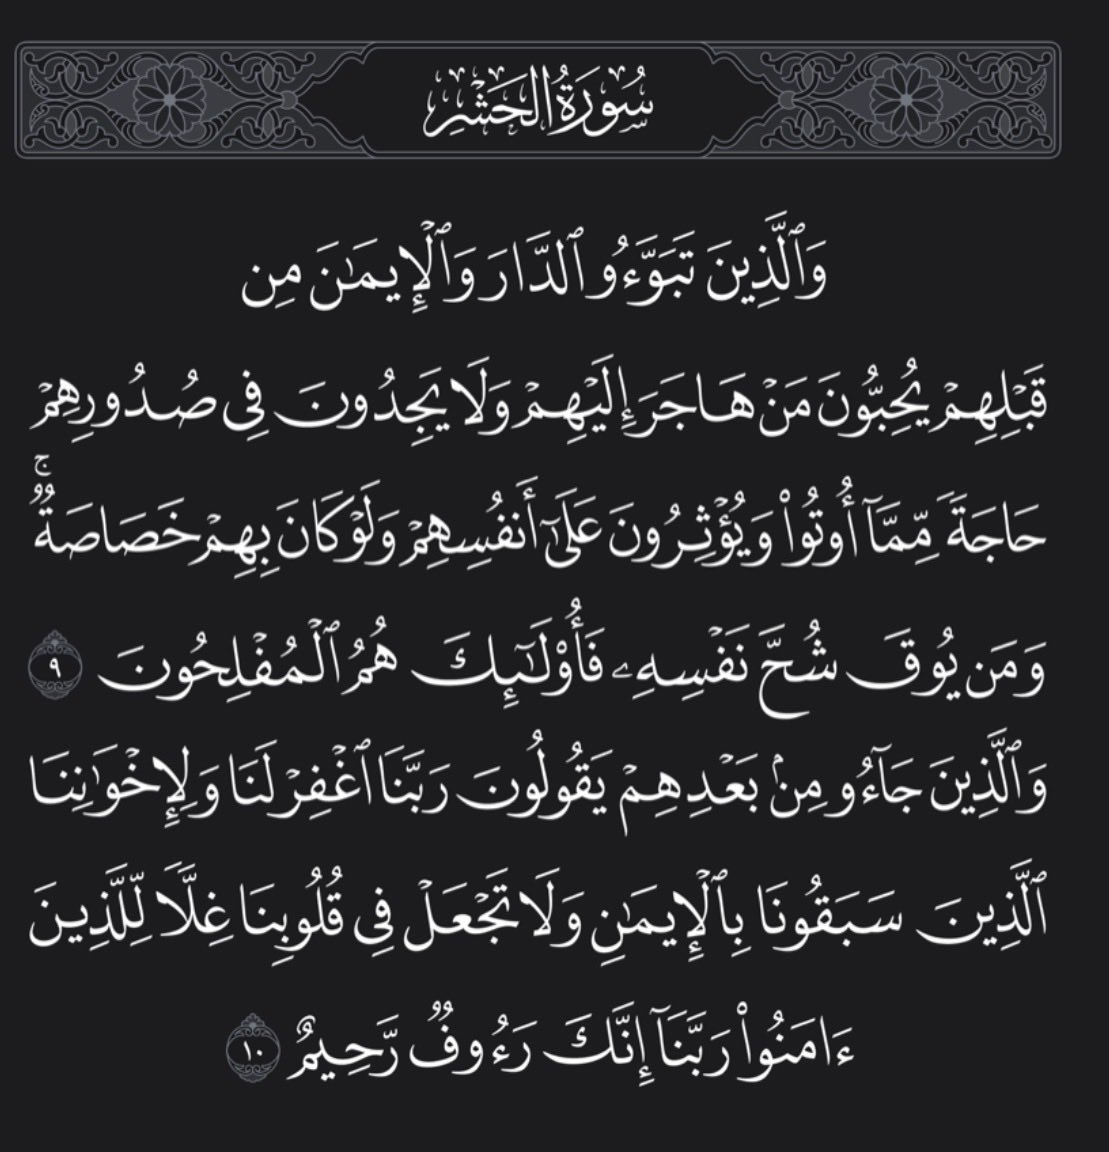 سُورَةُ الحَشْرِ
وَٱلَّذِينَ تَبَوَّءُو ٱلدَّارَ وَٱلْإِيمَٰنَ مِن
قَبْلِهِمْ يُحِبُّونَ مَنْ هَاجَرَ إِلَيْهِمْ وَلَا يَجِدُونَ فِى صُدُورِهِمْ
حَاجَةً مِّمَّآ أُوتُوا۟ وَيُؤْثِرُونَ عَلَىٰٓ أَنفُسِهِمْ وَلَوْ كَانَ بِهِمْ خَصَاصَةٌ ۚ
وَمَن يُوقَ شُحَّ نَفْسِهِۦ فَأُو۟لَٰٓئِكَ هُمُ ٱلْمُفْلِحُونَ ٩
وَٱلَّذِينَ جَآءُو مِنۢ بَعْدِهِمْ يَقُولُونَ رَبَّنَا ٱغْفِرْ لَنَا وَلِإِخْوَٰنِنَا
ٱلَّذِينَ سَبَقُونَا بِٱلْإِيمَٰنِ وَلَا تَجْعَلْ فِى قُلُوبِنَا غِلًّا لِّلَّذِينَ
ءَامَنُوا۟ رَبَّنَآ إِنَّكَ رَءُوفٌ رَّحِيمٌ ١٠